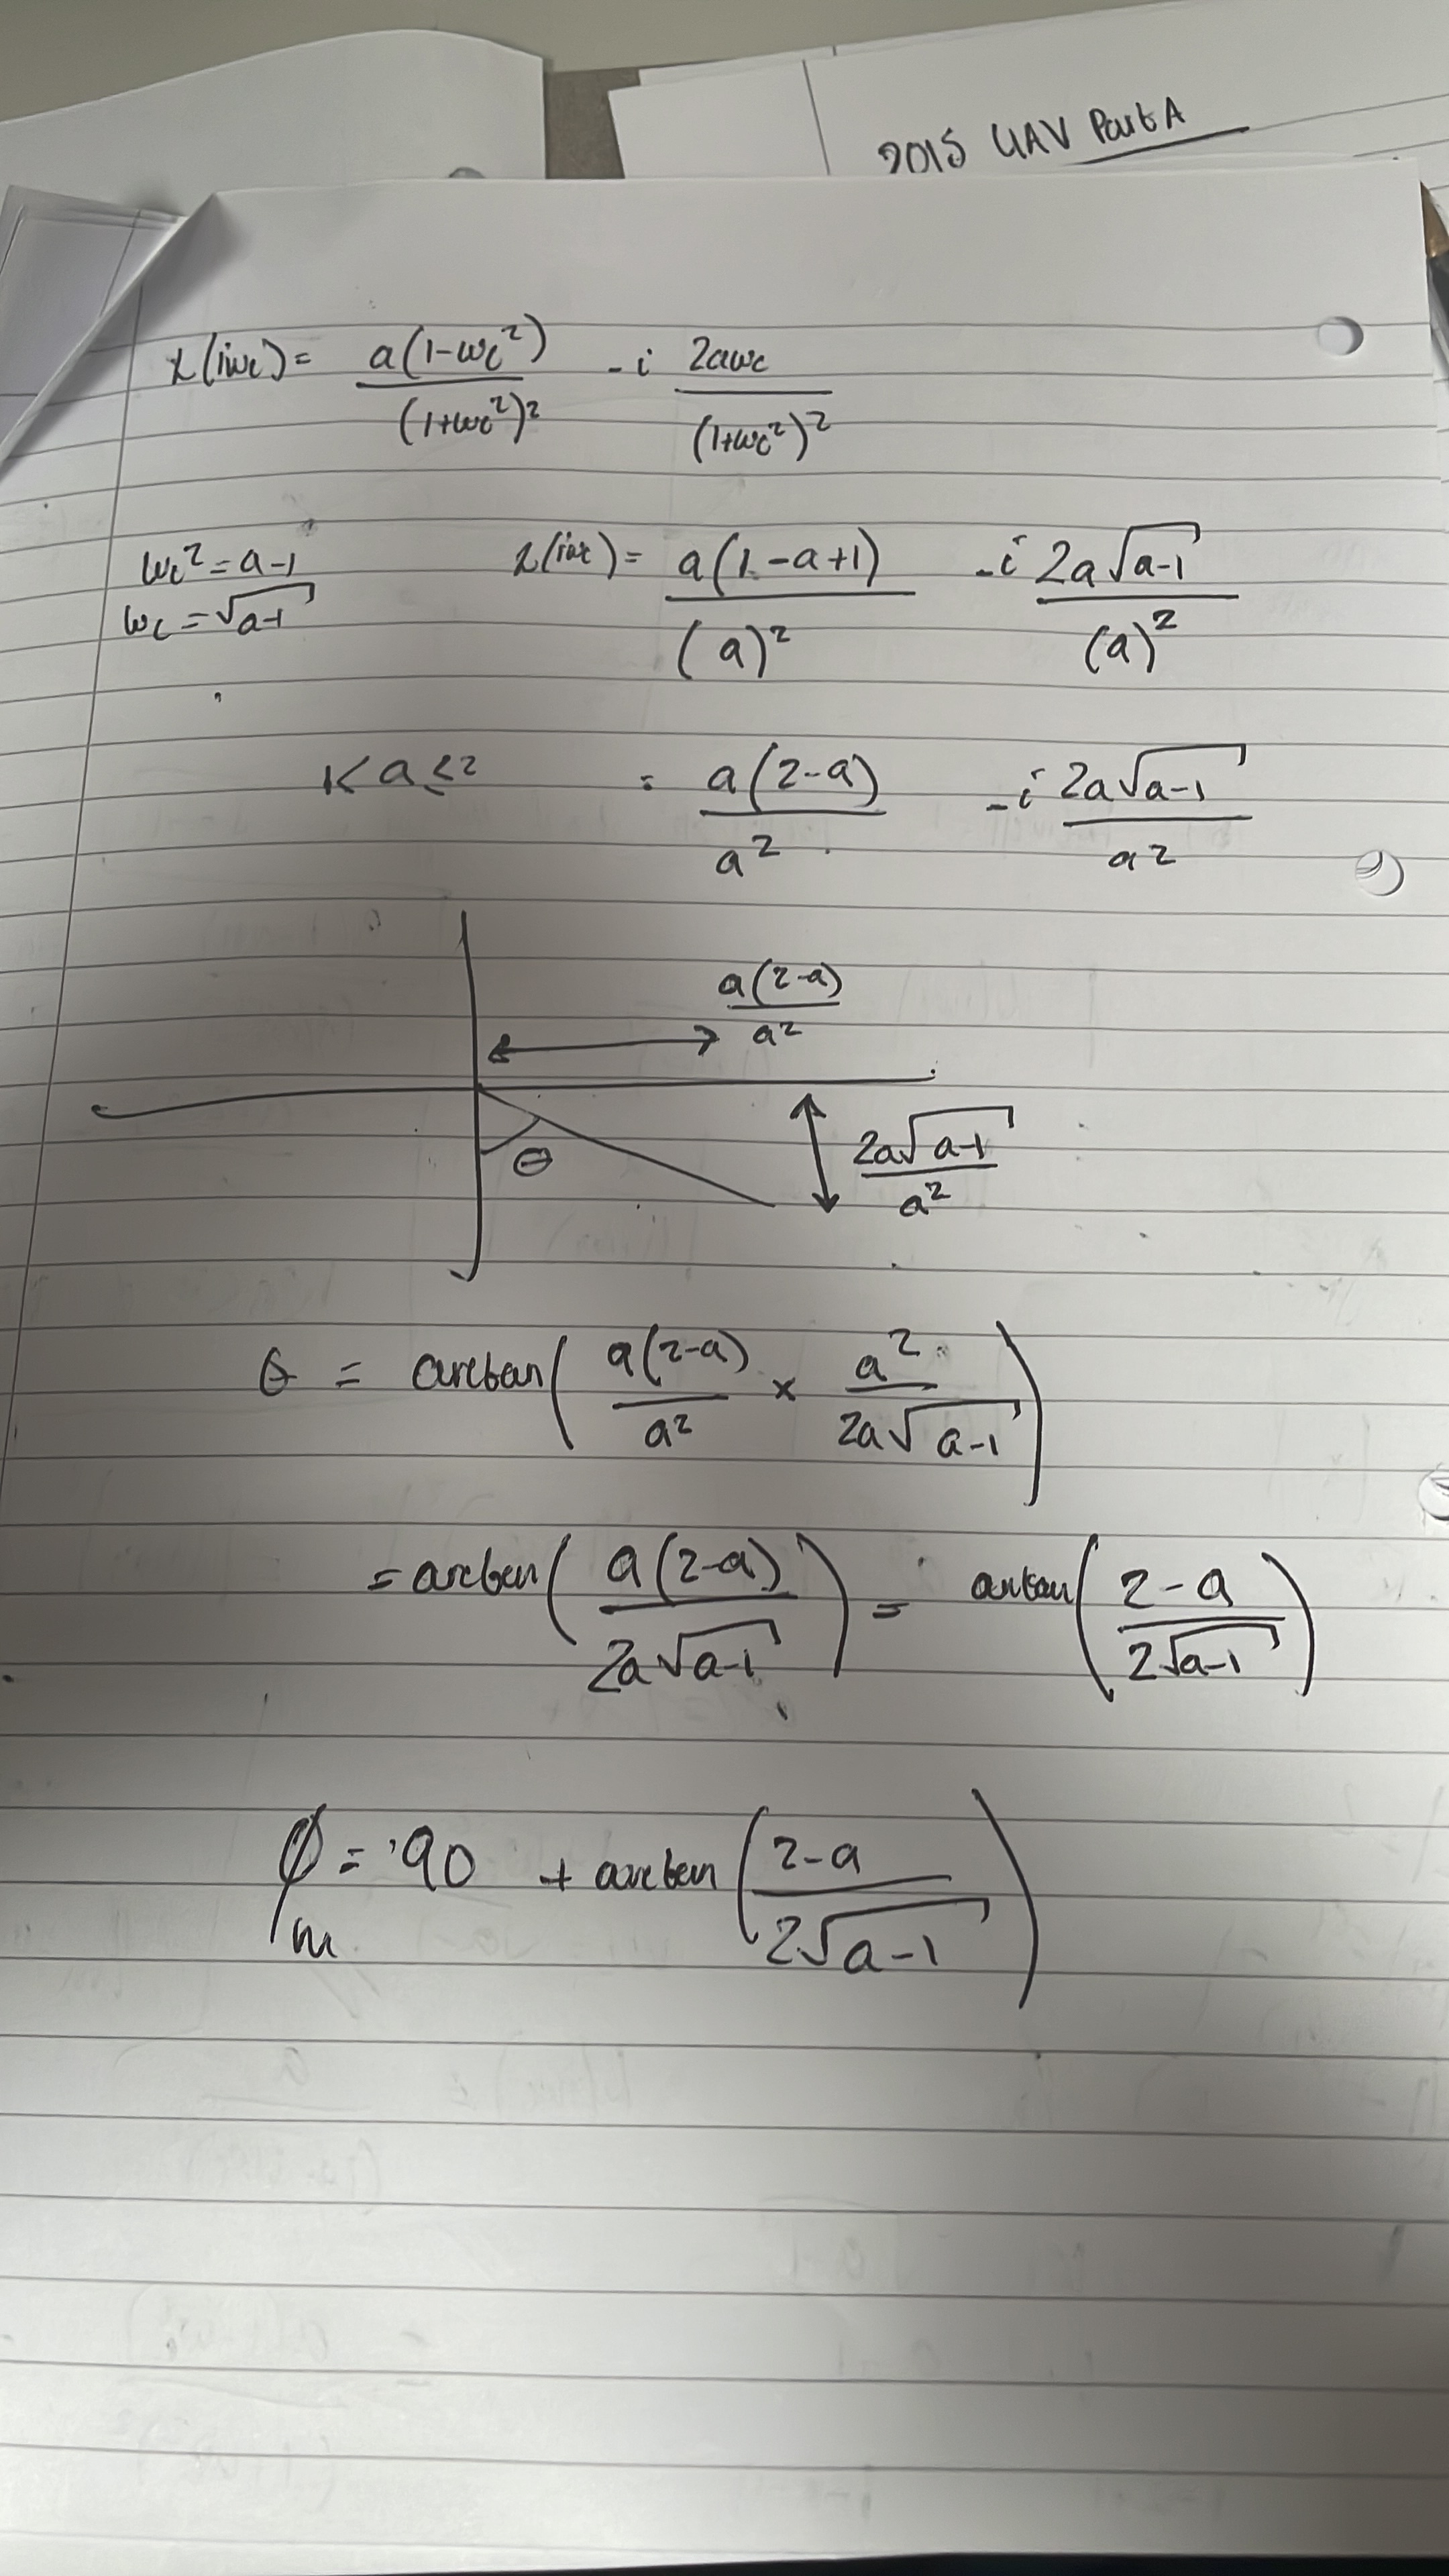 2015 UAV Part A
L(iωc) = a(1-ωc²)/(1+ωc²)² - i 2aωc/(1+ωc²)²
ωc² = a-1
ωc = √a-1
L(iωc) = a(1-a+1)/(a)² - i 2a√a-1/(a)²
1<a≤2
= a(2-a)/a² - i 2a√a-1/a²
a(2-a)/a²
2a√a-1/a²
θ
θ = arctan(a(2-a)/a² × a²/2a√a-1)
= arctan(a(2-a)/2a√a-1) = arctan(2-a/2√a-1)
φm = 90 + arctan(2-a/2√a-1)